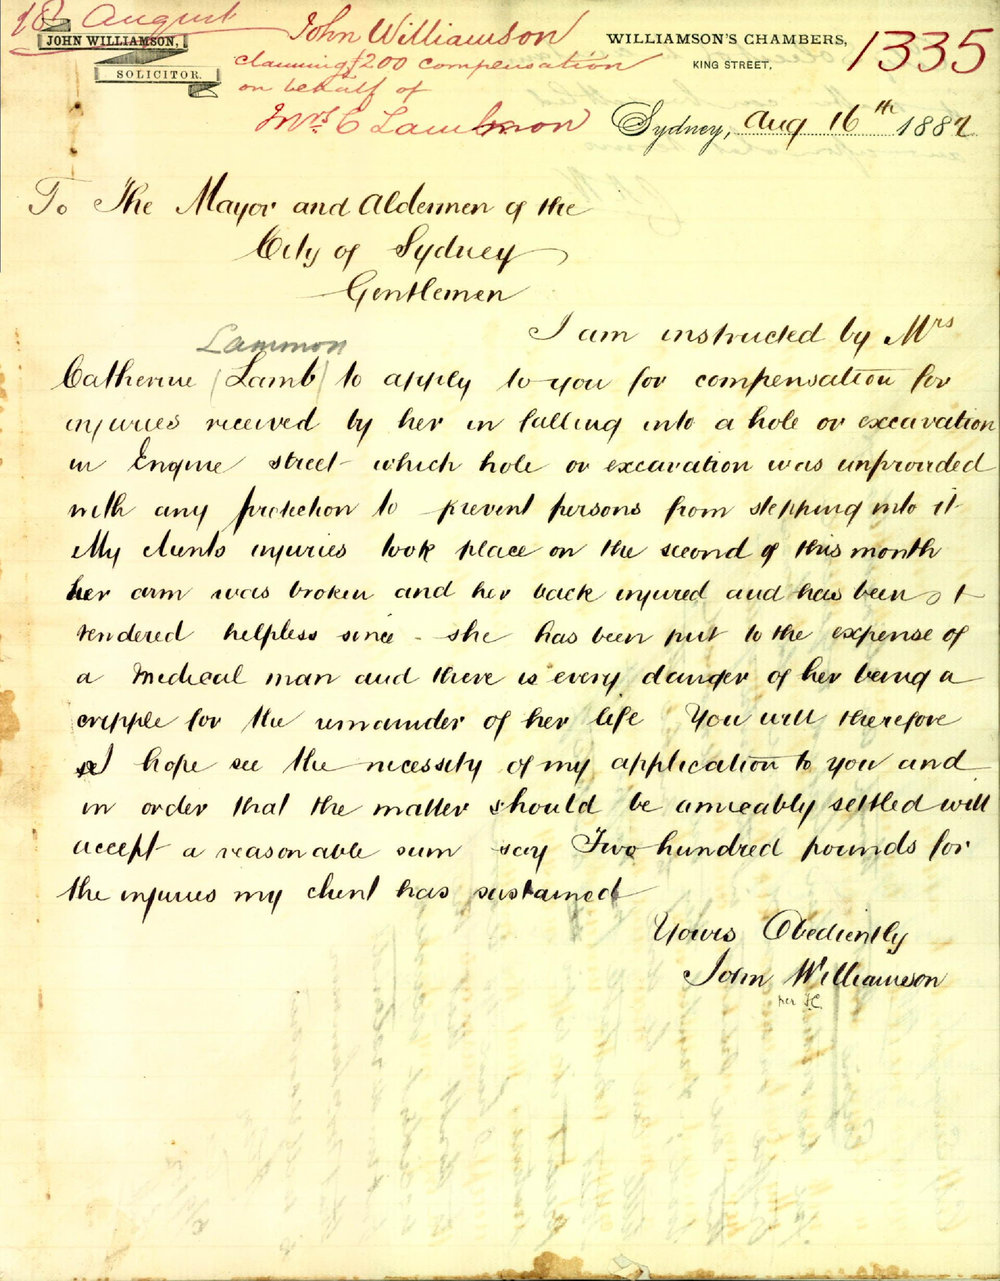 18 August
JOHN WILLIAMSON,
SOLICITOR.
John Williamson
claiming £200 compensation
on behalf of
Mrs C Lammon
WILLIAMSON'S CHAMBERS,
KING STREET.
1335
Sydney, Aug 16th 1882
To The Mayor and Aldermen of the
City of Sydney
Gentlemen
I am instructed by Mrs
Lammon
Catherine (Lamb) to apply to you for compensation for
injuries received by her in falling into a hole or excavation
in Engine street which hole or excavation was unprovided
with any protection to prevent persons from stepping into it
My clients injuries took place on the second of this month
her arm was broken and her back injured and has been
rendered helpless since - she has been put to the expense of
a medical man and there is every danger of her being a
cripple for the remainder of her life You will therefore
I hope see the necessity of my application to you and
in order that the matter should be amicably settled will
accept a reasonable sum say Two hundred pounds for
the injuries my client has sustained
Yours Obediently
John Williamson
per J.C.